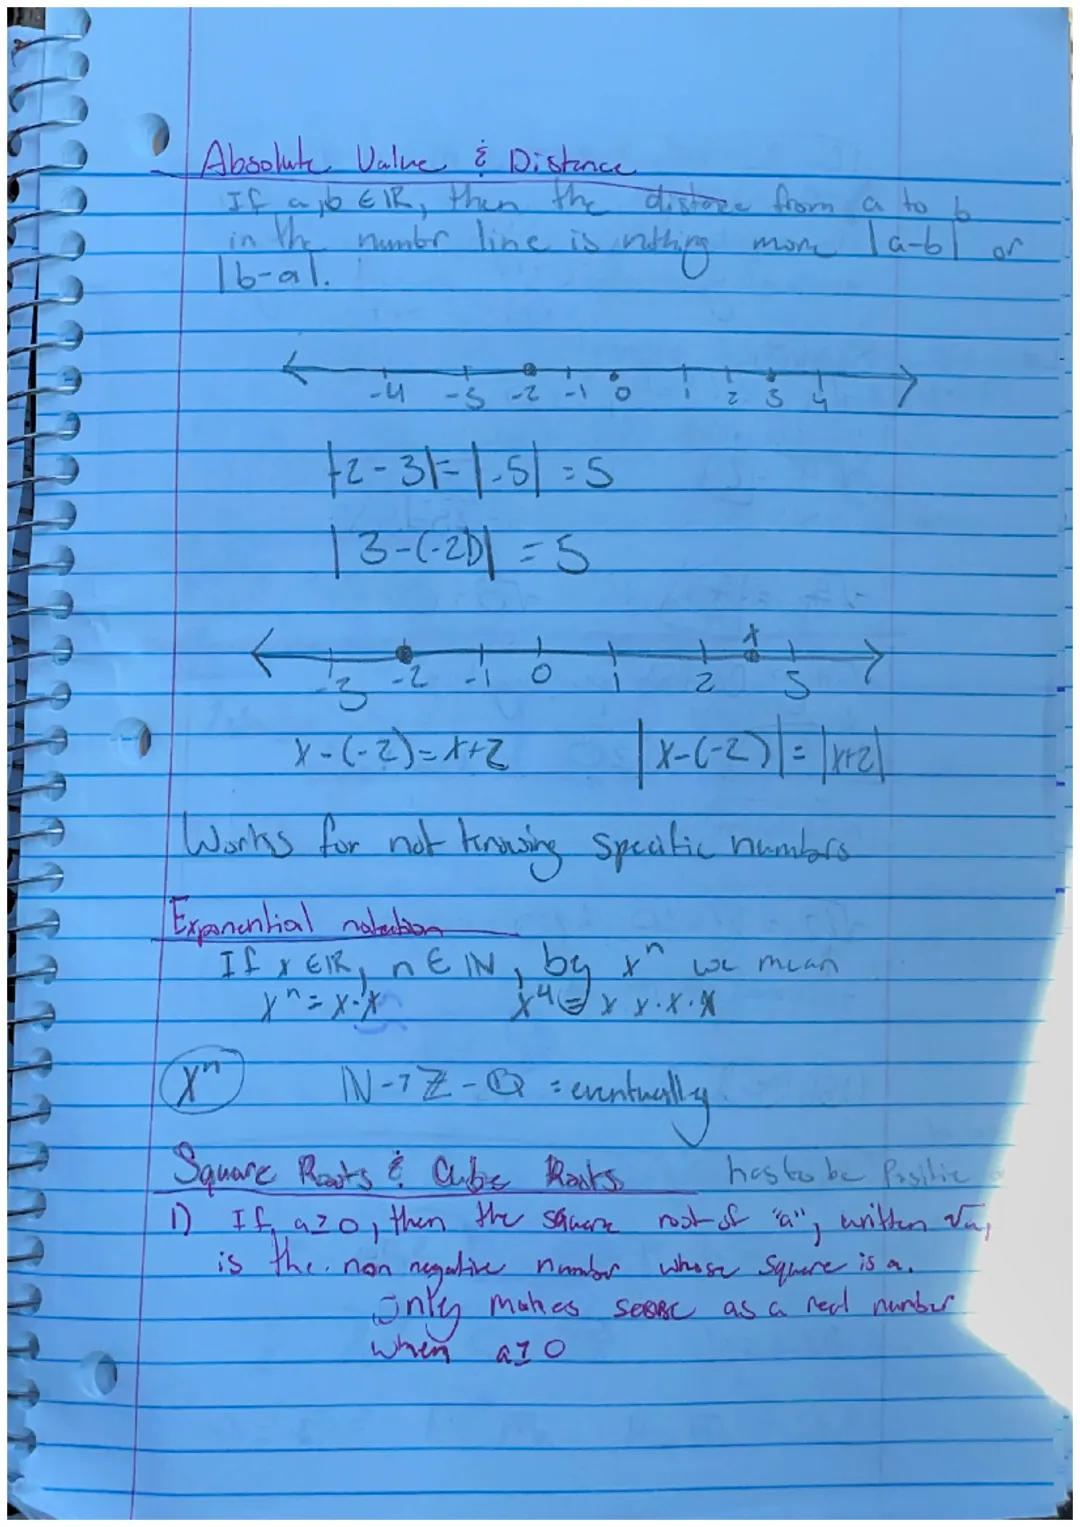 Absolute Value & Distance
If a, b ∈ ℝ, then the distance from a to b
in the numbr line is nithing more |a-b| or
|b-a|.
-4 -3 -2 -1 0 1 2 3 4
|-2-3|=|-5|=5
|3-(-2)|=5
x
-3 -2 -1 0 1 2 3
x-(-2)=x+2 |x-(-2)|=|x+2|
Works for not knowing specific numbers
Exponential notation
If x ∈ ℝ, n ∈ ℕ, by xⁿ we mean
xⁿ=x·x x⁴=x x·x·x
xⁿ ℕ-7 ℤ-ℚ = eventually
Square Roots & Cube Roots has to be Positive
1) If a≥0, then the square root of "a", written √a,
is the non negative number whose square is a.
Only makes sense as a real number
when a≥0